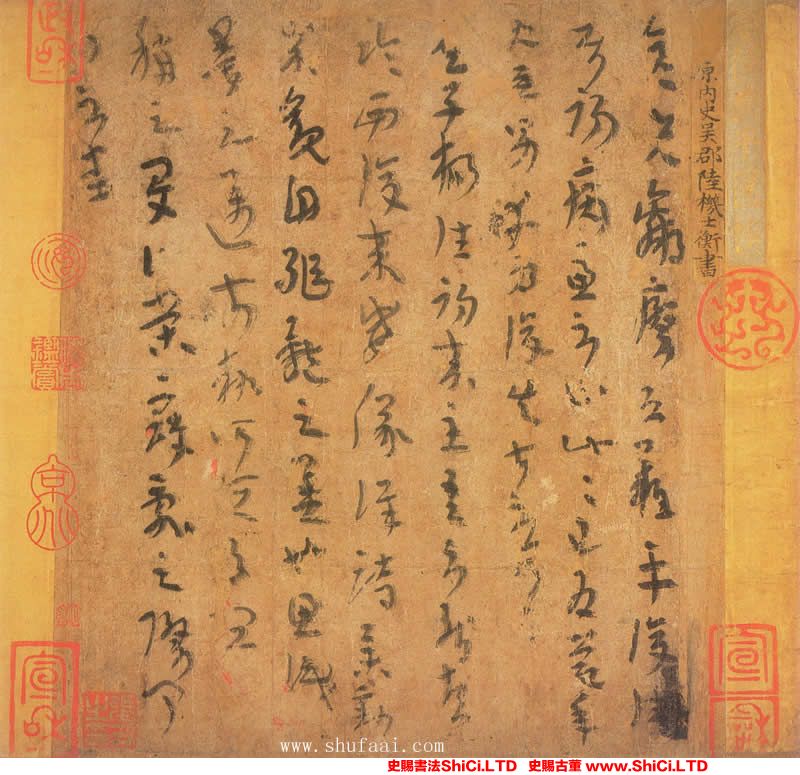 原內史吳郡陸機士衡書
彥先羸瘵恐難平復往屬
初病慮不止此此已為慶承
使男幸為復失前憂耳
子楊往初來主吾不能盡
臨西復來威儀詳跱舉動
成觀自軀體之美也思識
量之邁前執所恒有宜
稱之夏榮寇亂之際聞
問不悉
政和
宣和
宣和
www.shufaai.com
史賜書法ShiCi.LTD 史賜古董 www.ShiCi.LTD